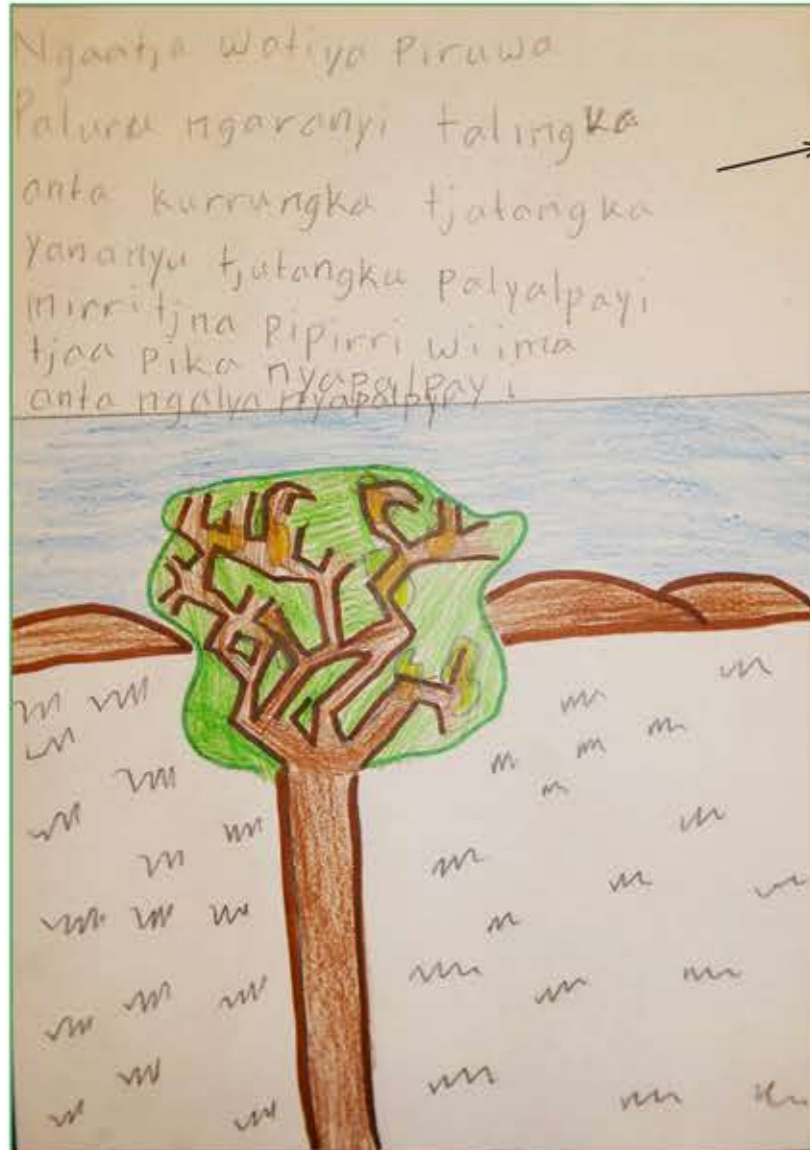 Ngaatja watiya piruwa
Paluru ngaranyi talingka
anta kurrungka tjatangka
yananyu tjutangku palyalpayi
mirritjna pipirri wiima
tjaa pika nyapalpayi
anta ngalya